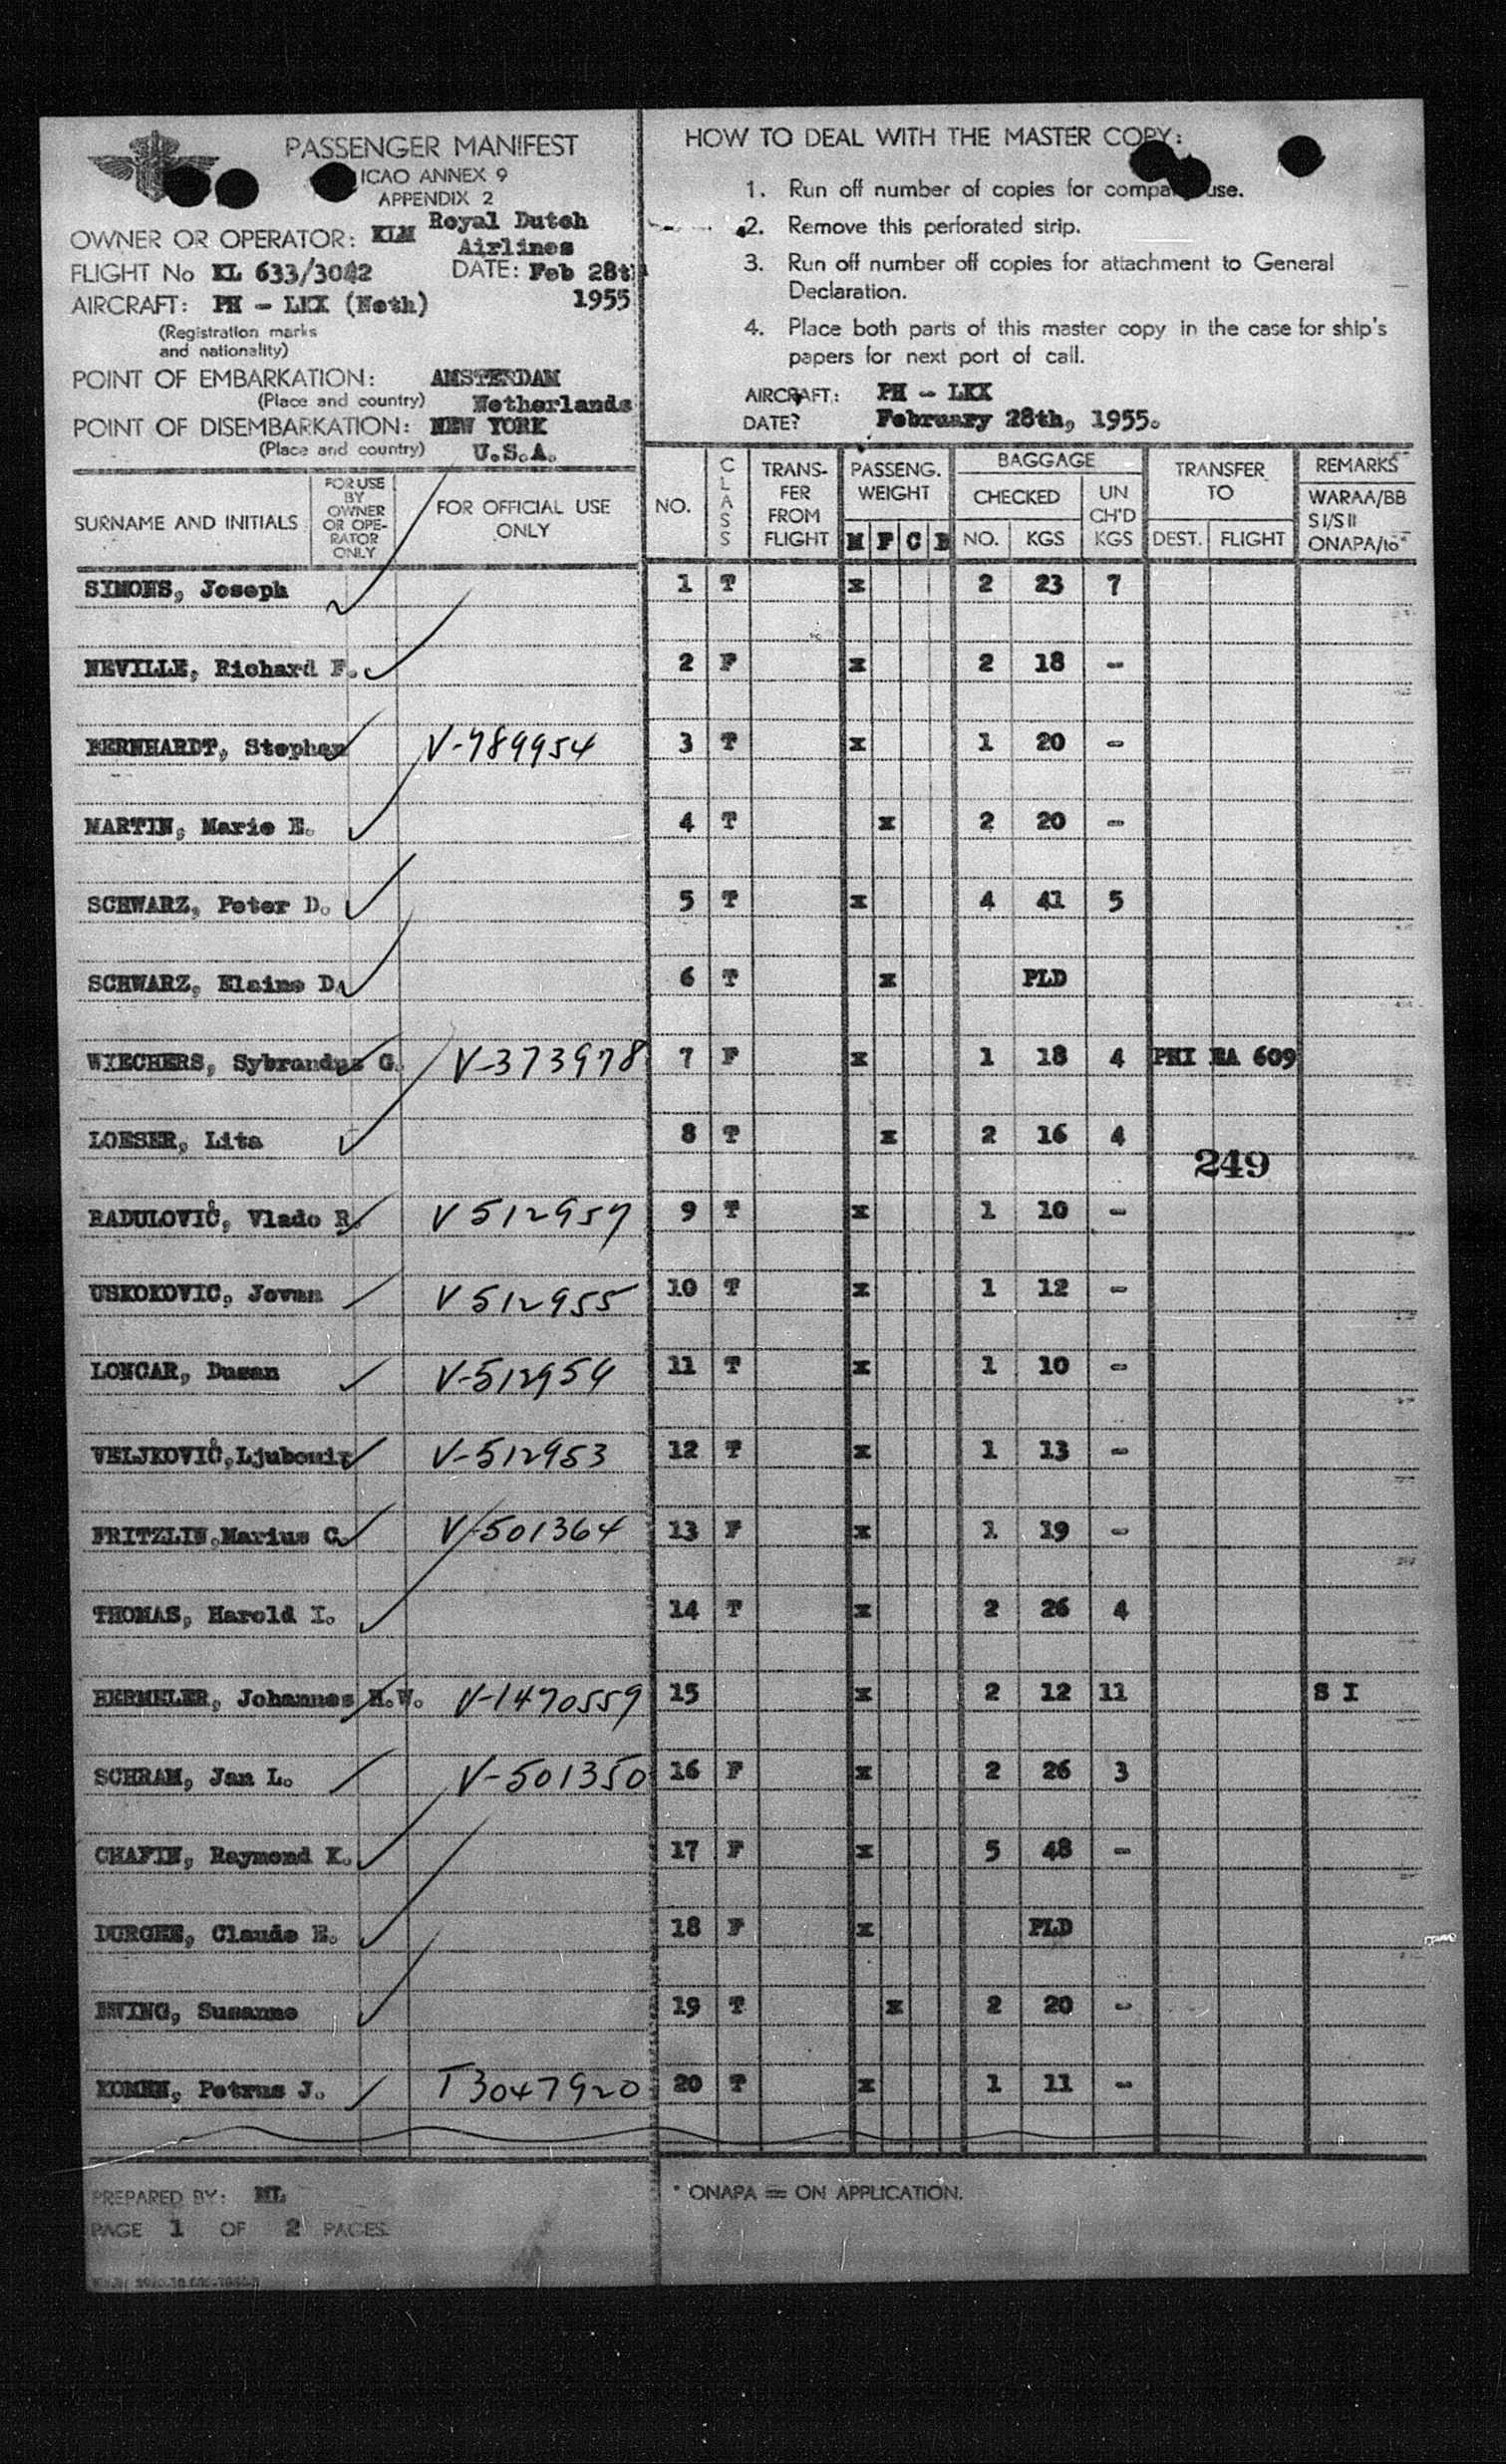 PASSENGER MANIFEST
ICAO ANNEX 9
APPENDIX 2
OWNER OR OPERATOR: KLM Royal Dutch
Airlines
FLIGHT No KL 633/3042 DATE: Feb 28th
AIRCRAFT: PH - LKX (Neth) 1955
(Registration marks
and nationality)
POINT OF EMBARKATION: AMSTERDAM
(Place and country) Netherlands
POINT OF DISEMBARKATION: NEW YORK
(Place and country) U.S.A.
HOW TO DEAL WITH THE MASTER COPY:
1. Run off number of copies for company use.
2. Remove this perforated strip.
3. Run off number off copies for attachment to General
Declaration.
4. Place both parts of this master copy in the case for ship's
papers for next port of call.
AIRCRAFT: PH - LKX
DATE? February 28th, 1955.
SURNAME AND INITIALS
FOR USE
BY
OWNER
OR OPE-
RATOR
ONLY
FOR OFFICIAL USE
ONLY
NO.
CLASS
TRANS-
FER
FROM
FLIGHT
PASSENG.
WEIGHT
M F C B
BAGGAGE
CHECKED
NO. KGS
UN
CH'D
KGS
TRANSFER
TO
DEST. FLIGHT
REMARKS
WARAA/BB
SI/SII
ONAPA/to*
SIMONS, Joseph 1 T x 2 23 7
NEVILLE, Richard F. 2 F x 2 18 -
BERNHARDT, Stephan V-989954 3 T x 1 20 -
MARTIN, Marie E. 4 T x 2 20 -
SCHWARZ, Peter D. 5 T x 4 41 5
SCHWARZ, Elaine D. 6 T x PLD
WIECHERS, Sybrandus G. V-373978 7 F x 1 18 4 PHI EA 609
LOESER, Lita 8 T x 2 16 4
249
RADULOVIĈ, Vlado R. V 512957 9 T x 1 10 -
USKOKOVIC, Jovan V 512955 10 T x 1 12 -
LONCAR, Dusan V-512954 11 T x 1 10 -
VELJKOVIĈ,Ljubomir V-512953 12 T x 1 13 -
FRITZLIN,Marius C. V-501364 13 F x 1 19 -
THOMAS, Harold I. 14 T x 2 26 4
HERMELER, Johannes H.W. V-1470559 15 x 2 12 11 S I
SCHRAM, Jan L. V-501350 16 F x 2 26 3
CHAFIN, Raymond K. 17 F x 5 48 -
DURGEE, Claude E. 18 F x PLD
EWING, Susanne 19 T x 2 20 -
KOMEN, Petrus J. T3047920 20 T x 1 11 -
PREPARED BY: ML
PAGE 1 OF 2 PAGES
* ONAPA = ON APPLICATION.